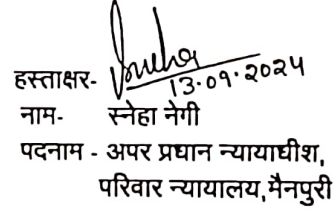 हस्ताक्षर-
13.09.2024
नाम- स्नेहा नेगी
पदनाम - अपर प्रधान न्यायाधीश,
परिवार न्यायालय, मैनपुरी